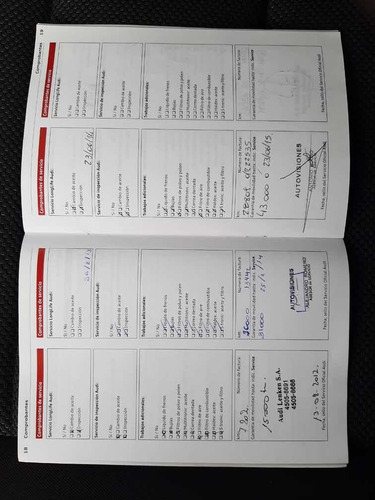 18
Comprobantes
Comprobantes de servicio
Servicio LongLife Audi:
Sí / No
Cambio de aceite
Inspección
Servicio de inspección Audi:
Sí / No
Cambio de aceite
Inspección
Trabajos adicionales:
Sí / No
Líquido de frenos
Bujías
Filtro de polvo y polen
Multitronic: aceite
Correa dentada
Filtro de aire
Filtro de combustible
Haldex: aceite
S tronic: aceite y filtro
Km
Número de factura
Garantía de movilidad hasta: indic. Service
15000
Audi Lenken S.A.
4505-8691
4505-8688
Fecha, sello del Servicio Oficial Audi
Comprobantes de servicio
Servicio LongLife Audi:
Sí / No
Cambio de aceite
Inspección
Servicio de inspección Audi:
Sí / No
Cambio de aceite
Inspección
Trabajos adicionales:
Sí / No
Líquido de frenos
Bujías
Filtro de polvo y polen
Multitronic: aceite
Correa dentada
Filtro de aire
Filtro de combustible
Haldex: aceite
S tronic: aceite y filtro
Km
Número de factura
Garantía de movilidad hasta: indic. Service
AUTOVISIONES
Fecha, sello del Servicio Oficial Audi
Comprobantes de servicio
Servicio LongLife Audi:
Sí / No
Cambio de aceite
Inspección
23/06/16
Servicio de inspección Audi:
Sí / No
Cambio de aceite
Inspección
Trabajos adicionales:
Sí / No
Líquido de frenos
Bujías
Filtro de polvo y polen
Multitronic: aceite
Correa dentada
Filtro de aire
Filtro de combustible
Haldex: aceite
S tronic: aceite y filtro
Km
Número de factura
Garantía de movilidad hasta: indic. Service
23/06/15
AUTOVISIONES
Fecha, sello del Servicio Oficial Audi
Comprobantes
19
Comprobantes de servicio
Servicio LongLife Audi:
Sí / No
Cambio de aceite
Inspección
Servicio de inspección Audi:
Sí / No
Cambio de aceite
Inspección
Trabajos adicionales:
Sí / No
Líquido de frenos
Bujías
Filtro de polvo y polen
Multitronic: aceite
Correa dentada
Filtro de aire
Filtro de combustible
Haldex: aceite
S tronic: aceite y filtro
Km
Número de factura
Garantía de movilidad hasta: indic. Service
Fecha, sello del Servicio Oficial Audi